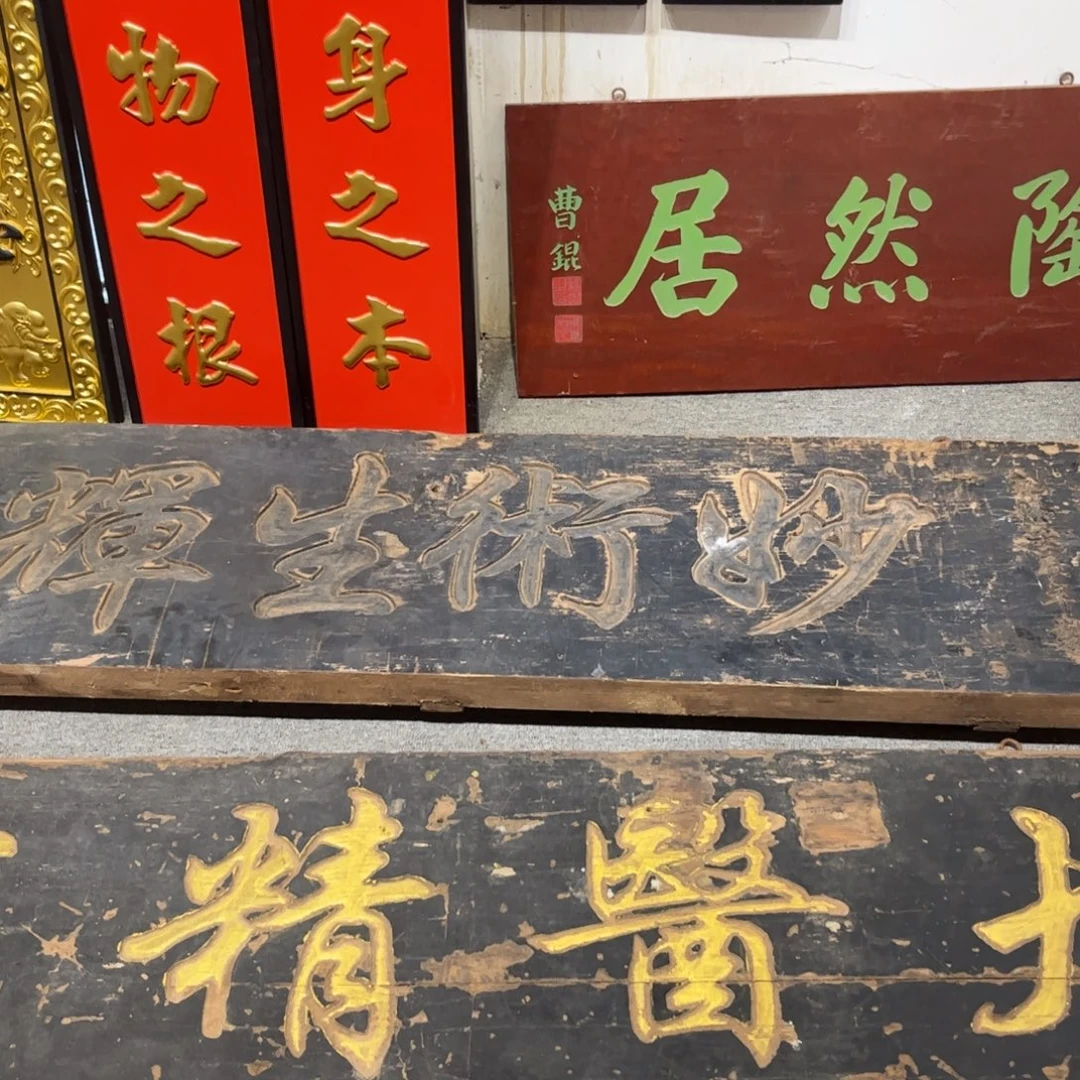 身之本
物之根
陶然居
曹錕
妙術生輝
醫精